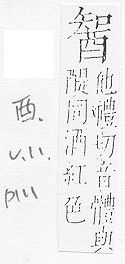 他禮切音體與
醍同酒紅色
酉.
V.11.